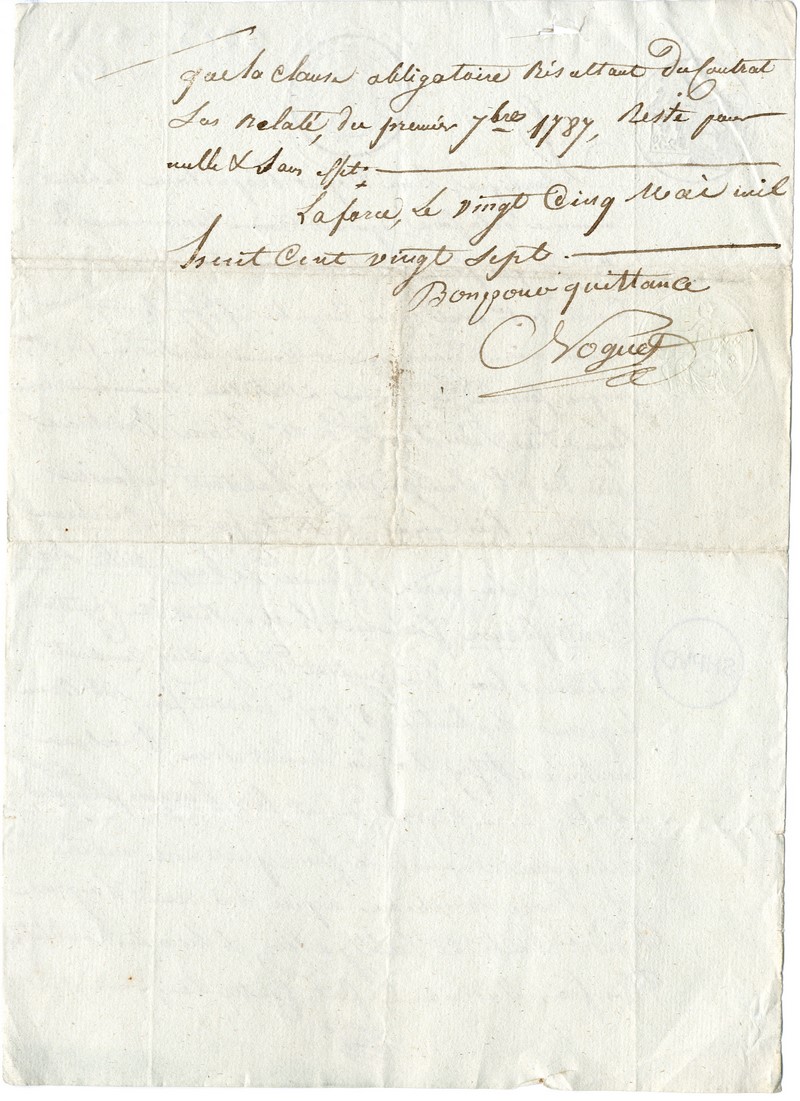 que la clause obligatoire Résultant Du Contrat
sus relaté, du premier 7bre 1787, Reste pour
nulle & sans effet.
Laforce, Le vingt Cinq Mai mil
huit Cent vingt Sept.
Bonpour quittance
Noguet
SHPVD